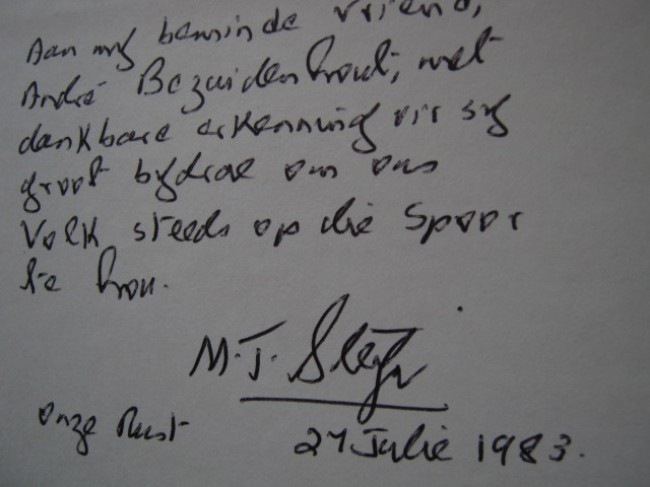 Aan my beminde vriend,
André Bezuidenhout, met
dankbare erkenning vir sy
groot bydrae om ons
Volk steeds op die Spoor
te hou.
M.T. Steyn
Onze Rust
27 Julie 1983.